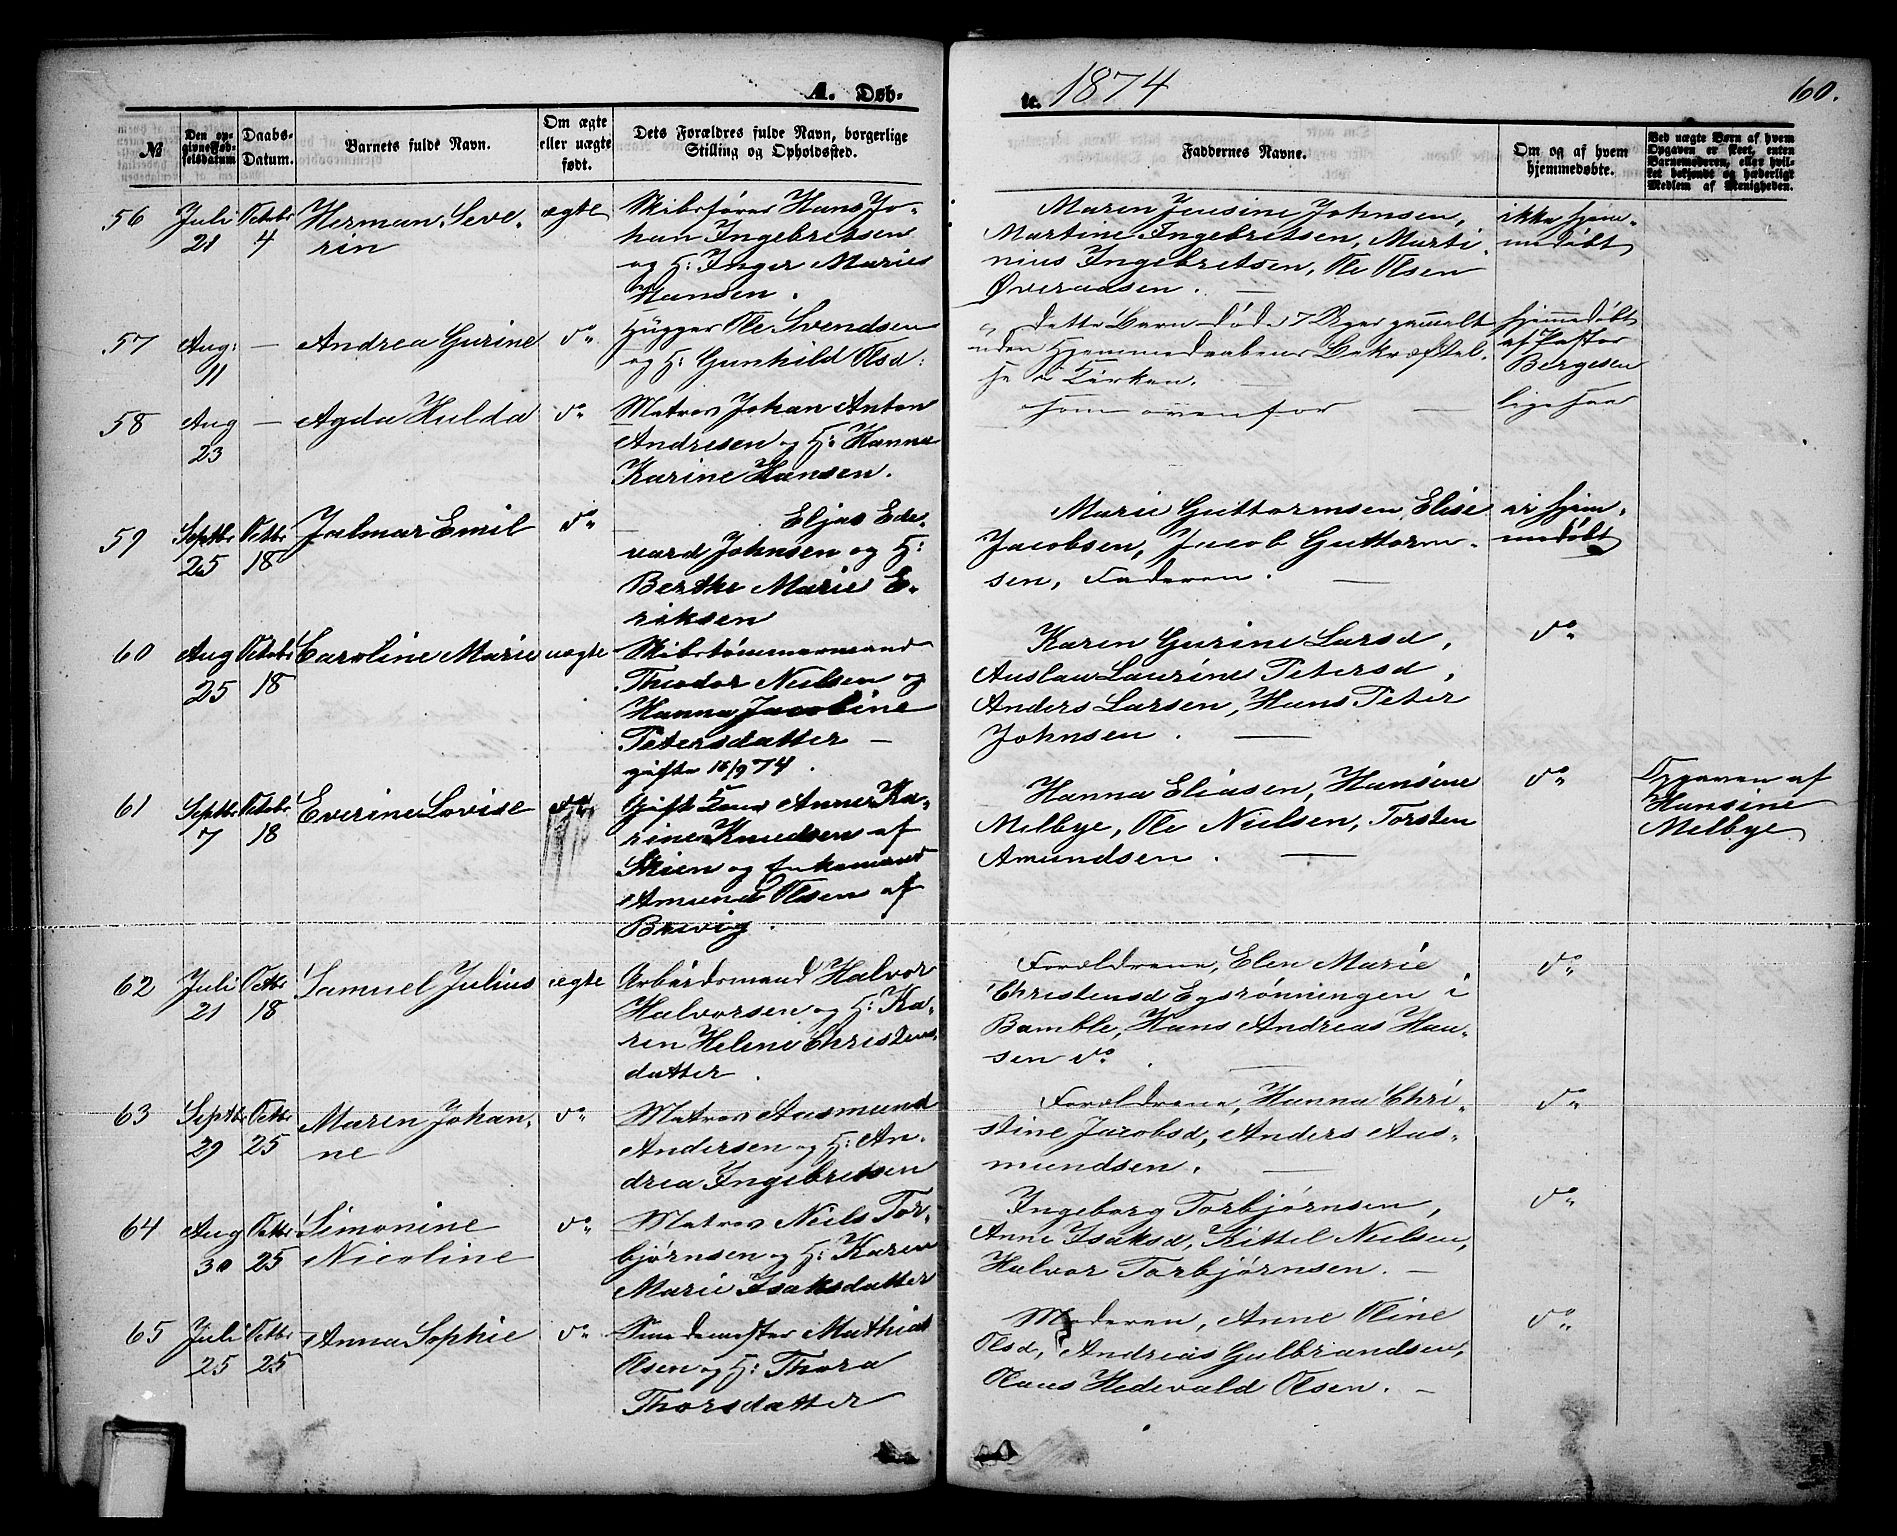 A. Døb-
te. 1874
60.
№
Den op-
givne Fød-
selsdatum
Daabs-
Datum.
Barnets fulde Navn.
Om ægte
eller uægte
født.
Dets Forældres fulde Navn, borgerlige
Stilling og Opholdssted.
Faddernes Navne.
Om og af hvem
hjemmedøbte.
Ved uægte Børn af hvem
Opgaven er skeet, enten
Barnemoderen, eller hvil-
ket bekjendt og hæderligt
Medlem af Menigheden.
56
Juli
21
Octobr
4
Herman Seve-
rin
ægte
Skibsfører Hans Jo-
han Ingebretsen
og H: Inger Marie
Hansen.
Maren Jensine Johnsen,
Martine Ingebretsen, Marti-
nius Ingebretsen, Ole Olsen
Øveraasen. —
ikke hjem-
medøbt
57
Aug:
11
—
Andrea Gurine
do
Hugger Ole Svendsen
og H: Gunhild Olsd:
Dette Barn døde 7 Uger gammelt
uden Hjemmedaabens Bekræftel-
se i Kirken.
hjemmedøbt
af Pastor
Bergesen
58
Aug
23
—
Agda Hulda
do
Matros Johan Anton
Andresen og H: Hanna
Karine Hansen.
som ovenfor —
ligesaa
59
Septbr
25
Octbr
18
Jalmar Emil
do
— Eljas Ed-
vard Johnsen og H:
Berthe Marie E-
riksen
Marie Guttormsen, Elise
Jacobsen, Jacob Guttorm-
sen, Faderen. —
ei hjem-
medøbt
60
Aug
25
Octobr
18
Caroline Marie
uægte
Skibstømmermand
Theodor Nielsen og
Hanna Jacobine
Petersdatter —
gifte 15/9 74.
Karen Gurine Larsd,
Auslau Laurine Petersd,
Anders Larsen, Hans Peter
Johnsen. —
do
61
Septbr
7
Octobr
18
Everine Lovise
Gift Kone Anne Ka-
rine Knudsen af
Skien og Enkemand
Amund Olsen af
Brevig.
Hanna Eliasen, Hansine
Melbye, Ole Nielsen, Torsten
Amundsen. —
do
Opgaven af
Hansine
Melbye
62
Juli
21
Octbr
18
Samuel Julius
ægte
Arbeidsmand Halvor
Halvorsen og H: Ka-
ren Helene Christens-
datter.
Forældrene, Elen Marie
Christensd Egsrønningen i
Bamble, Hans Andreas Han-
sen do. —
do
63
Septbr
29
Octbr
25
Maren Johan-
ne
do
Matros Aasmund
Andersen og H: An-
drea Ingebretsen
Forældrene, Hanna Chri-
stine Jacobsd, Anders Aas-
mundsen. —
do
64
Aug
30
Octbr
25
Simonine
Nicoline
do
Matros Niels Tor-
bjørnsen og H: Karen
Marie Isaksdatter
Ingeborg Torbjørnsen,
Anne Isaksd, Kittel Nielsen,
Halvor Torbjørnsen. —
do
65
Juli
25
Octbr
25
Anna Sophie
do
Smedemester Mathias
Olsen og H: Thora
Thorsdatter
Moderen, Anne Oline
Olsd, Andreas Gulbrandsen,
Olaus Hedevald Olsen. —
do